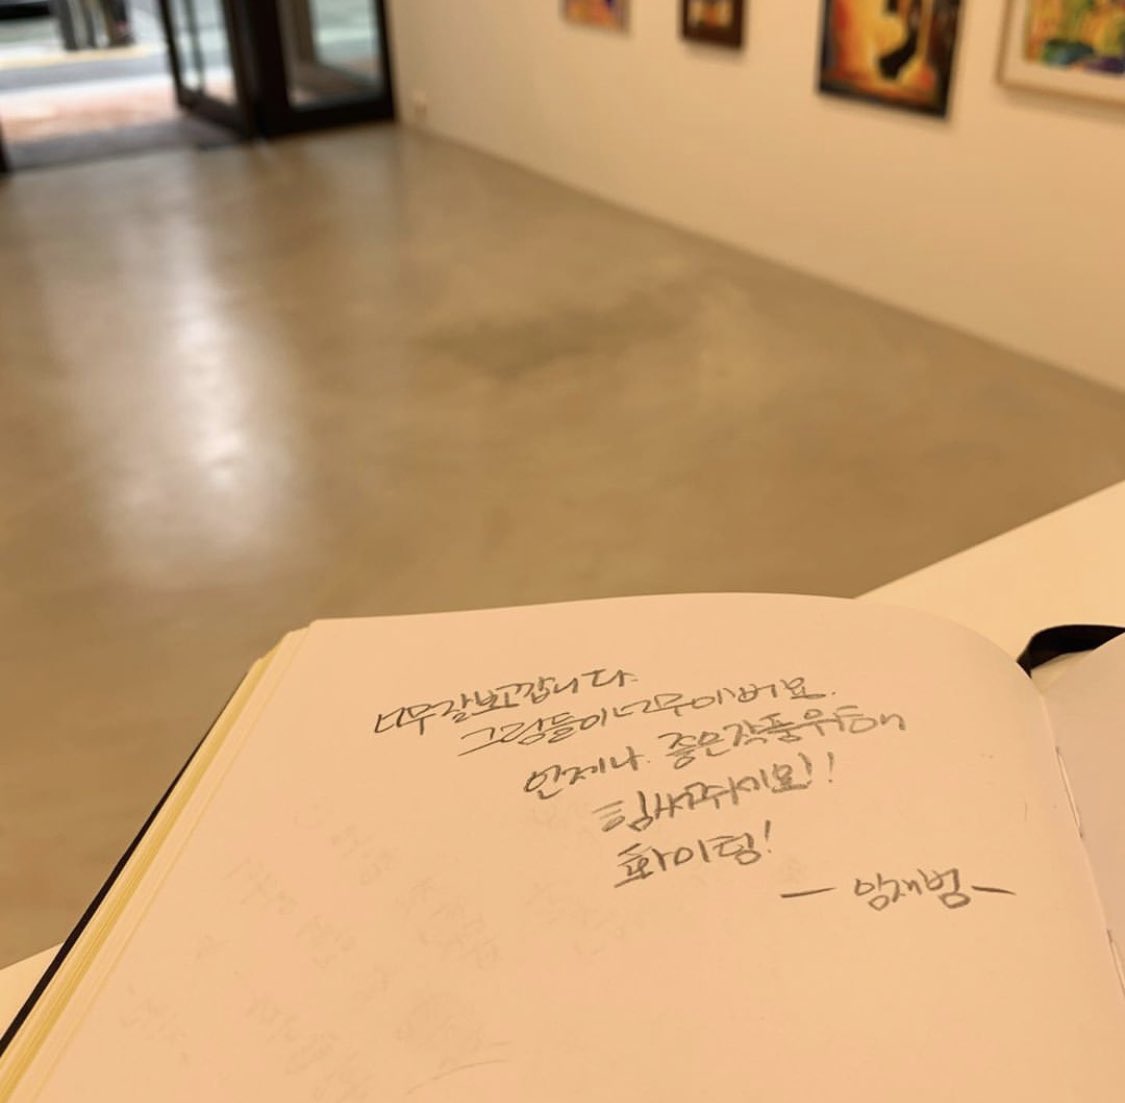 너무잘보고갑니다.
그림들이너무이뻐요.
언제나. 좋은작품위해
힘써주세요!!
화이팅!
— 임재범 —